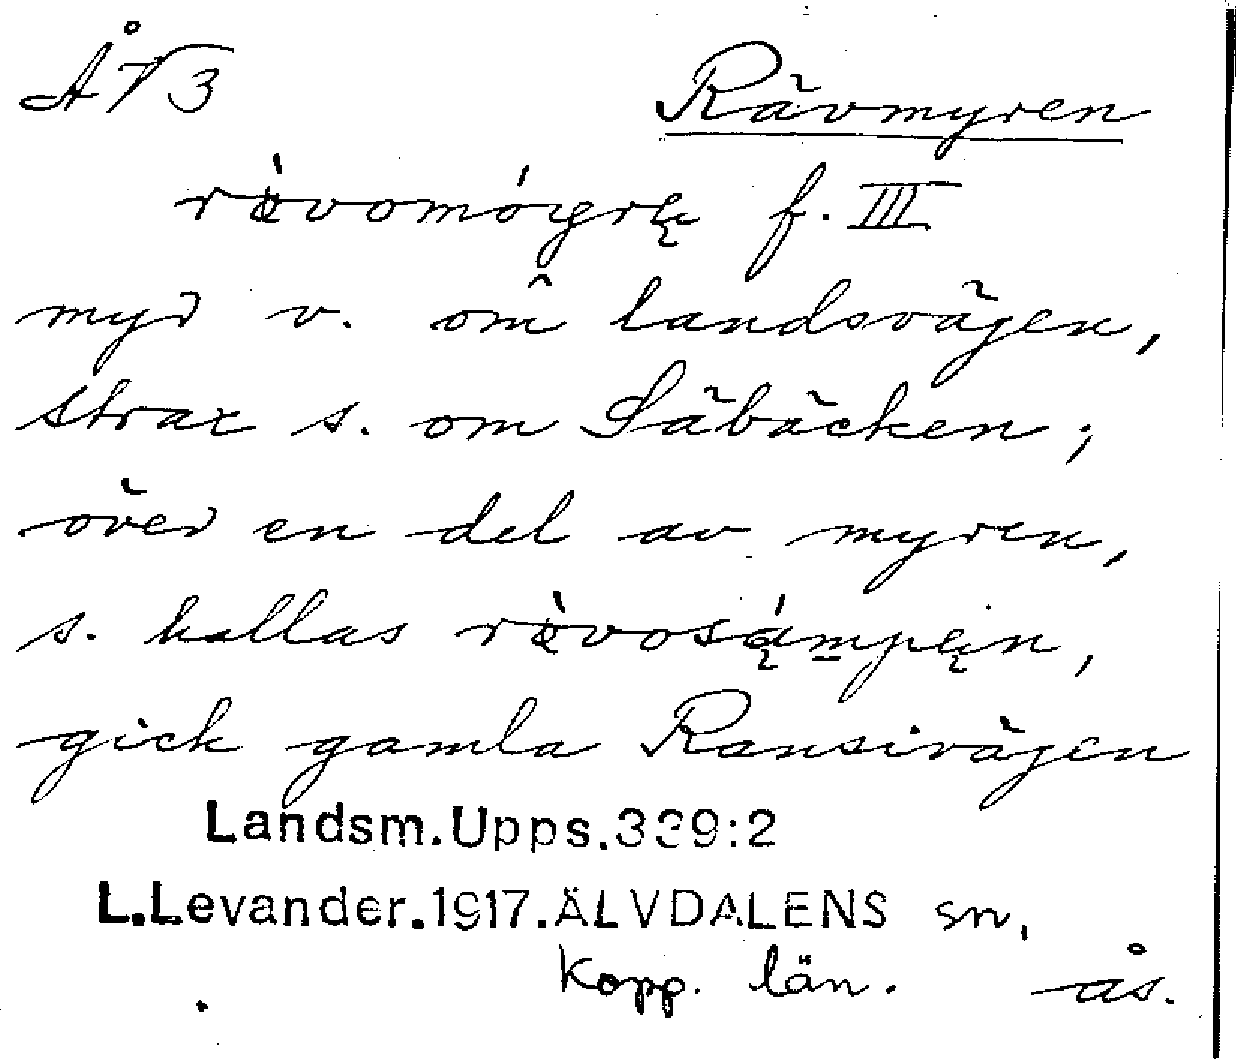 Å V 3
Rävmyren
rövomóyrę f. III
myr v. om landsvägen,
strax s. om Säbäcken;
över en del av myren,
s. kallas rövosą́mpęn,
gick gamla Ransivägen
Landsm.Upps.339:2
L.Levander.1917.ÄLVDALENS sn.
Kopp. län. ås.